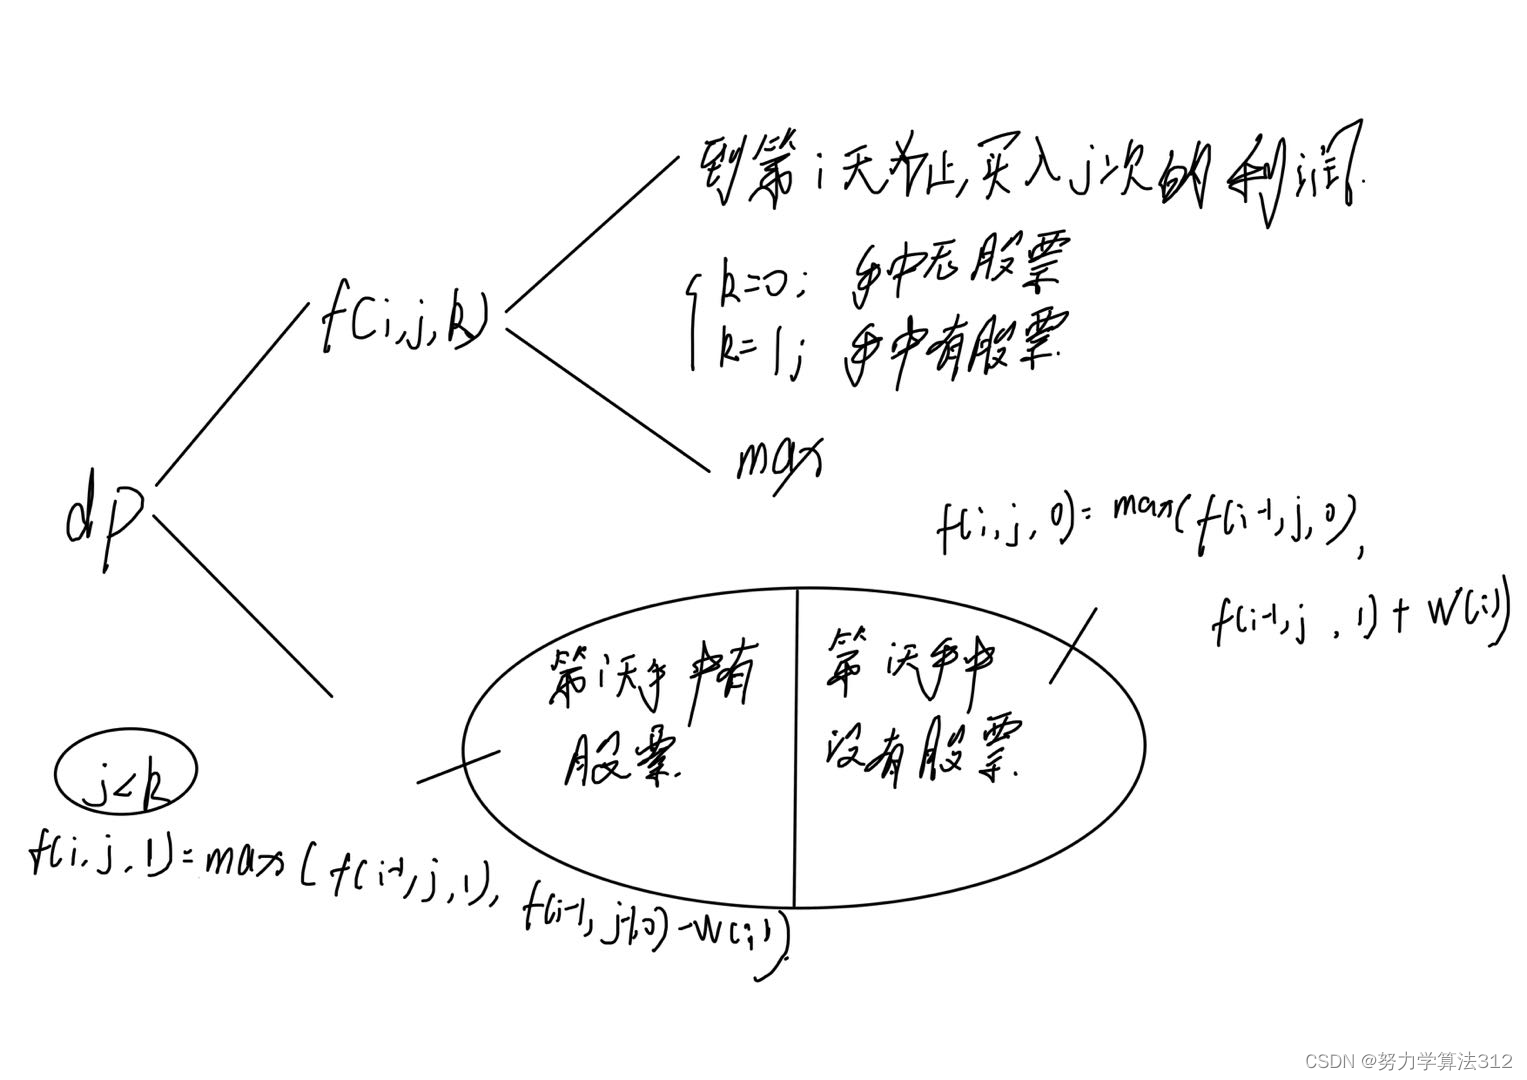 到第i天为止,买入j次的利润.
k=0; 手中无股票
k=1; 手中有股票.
f(i,j,k)
max
dp
f(i,j,0)=max(f(i-1,j,0),
f(i-1,j,1)+w(i))
第i天手中有
股票.
第i天手中
没有股票.
j<k
f(i,j,1)=max(f(i-1,j,1),f(i-1,j-1,0)-w(i)).
CSDN @努力学算法312